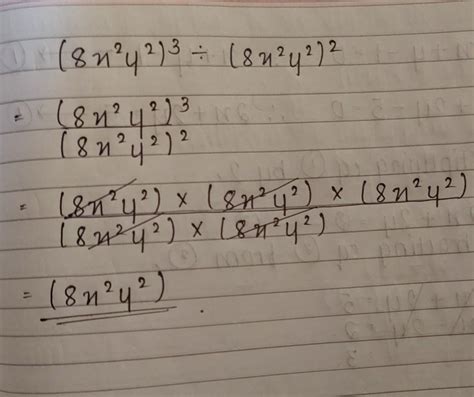 (8x²y²)³ ÷ (8x²y²)²
= (8x²y²)³
(8x²y²)²
= (8x²y²) × (8x²y²) × (8x²y²)
(8x²y²) × (8x²y²)
= (8x²y²)